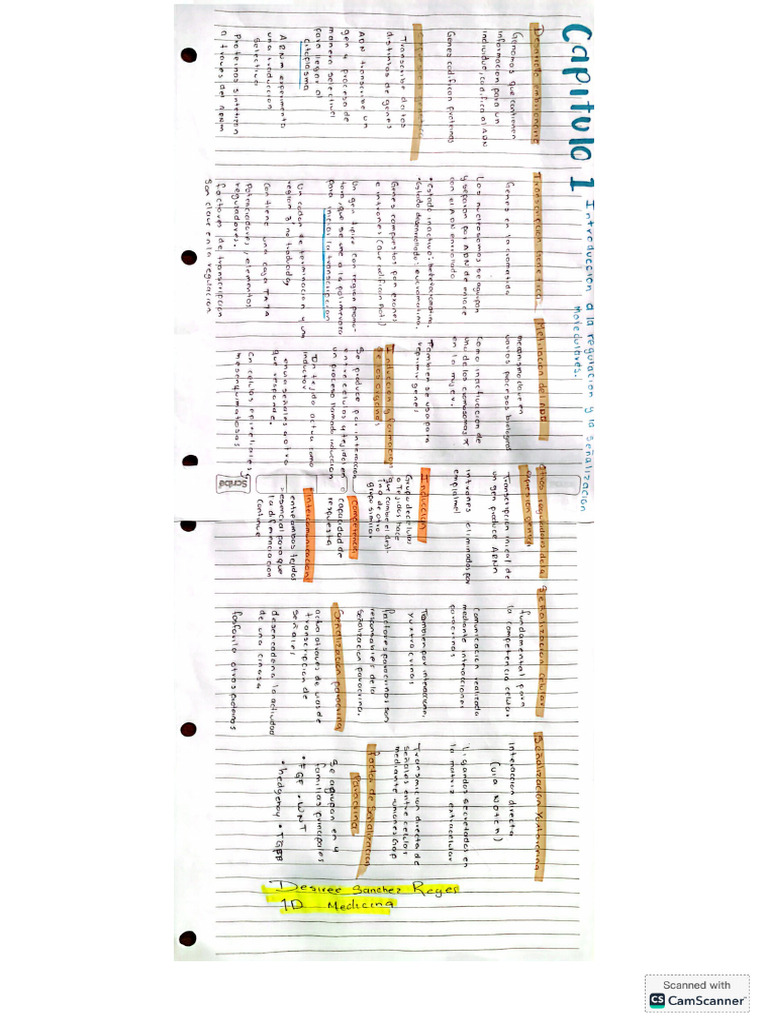 Capítulo 1 Introducción a la regulación y la señalización
Moleculares.
Desarrollo embrionario
Genomas que contienen
información para un
individuo, codifica el ADN
Genes codifican proteínas
Transcribe datos
distintos de genes
ADN transcribe un
gen y procesa de
manera selectiva
para llegar al
citoplasma
ARNm experimenta
una traducción
selectiva
Proteínas sintetizan
a traves del ARNm
Transcripción genética
Genes en la cromatina
Los nucleosomas se agrupan
y separan por ADN de enlace
con el ADN enrollado
*Estado inactivo: heterocromatina.
*Estado desenrollado: eucromatina.
Genes compuestos por exones
e intrones (que codifican prot.)
Un gen típico con región promo-
tora, que se une a la polimerasa
para iniciar la transcripción
Un codón de terminación y una
región 3' no traducida
Contiene una caja TATA
Potenciadores, elementos
reguladores.
Factores de transcripción
son clave en la regulación
Metilación del ADN
mecanismo clave en
varios procesos biológicos
Como inactivación de
uno de los cromosomas X
en la mujer.
También se usa para
reprimir genes
Inducción y formación
de los órganos
Se produce por interacción
entre células y tejidos en
un proceso llamado inducción
Un tejido actua como
inductor
envía señales a otro
que responde.
En células epiteliales y
mesenquimatosas
Otros reguladores de la
expresión genica
Transcripción inicial de
un gen produce ARNn
intrones eliminados por
empalme
Inducción
Grupo de células
o tejidos hace
que cambie el desti-
no de otro
grupo similar.
Competencia
Capacidad de
respuesta
Intercomunicación
entre ambos tejidos
esencial para que
la diferenciación
continue
Scribe
Señalización celular
fundamental para
la competencia celular
Comunicación realizada
mediante interacciones
paracrinas
También por interacciones
yuxtacrinas
factores paracrinos son
responsables de la
señalización paracrina.
Señalización paracrina
actua atraves de vias de
transcripción de
señales
desencadena la actividad
de una cinasa
fosforila otras proteínas
Señalización Yuxtacrina
interacción directa
(vía Notch)
Ligandos secretados en
la matriz extracelular
Transmición directa de
señales entre celular
mediante uniones GAP
Factor de Señalización
Paracrina
Se agrupan en 4
familias principales
• FGF • WNT
• hedgehog • TGFB
Desiree Sanchez Reyes
1D Medicina
Scanned with
CS CamScanner